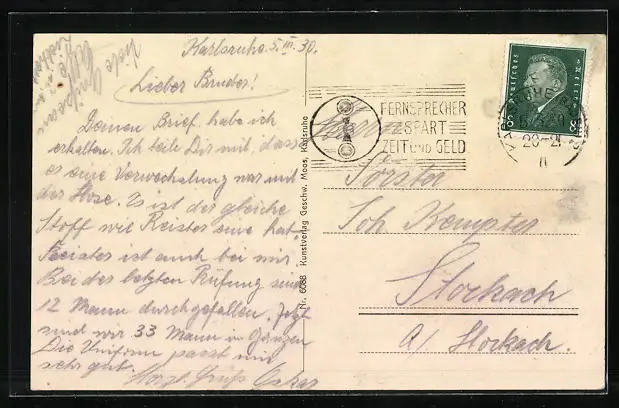 Karlsruhe 5. III. 30.
Lieber Bruder!
Deinen Brief, habe ich
erhalten. Ich teile Dir mit, dass
es eine Verwechslung war mit
der Hose. Es ist der gleiche
Stoff wie Reister eine hat.
ist auch bei mir
Bei der letzten Prüfung sind
12 Mann durchgefallen. Jetzt
sind wir 33 Mann in Ganzen
Die Uniform passt mir
sehr gut.
Herzl. Grüß Oskar
Viele Grüße
Nr. 6088 Kunstverlag Geschw. Moos, Karlsruhe
FERNSPRECHER
SPART
ZEIT UND GELD
Deutsches Reich
8 8
KARLSRUHE
5.3.30
20-21
Herrn
Förster
Joh. Kempter
Stockach
a/ Stockach.